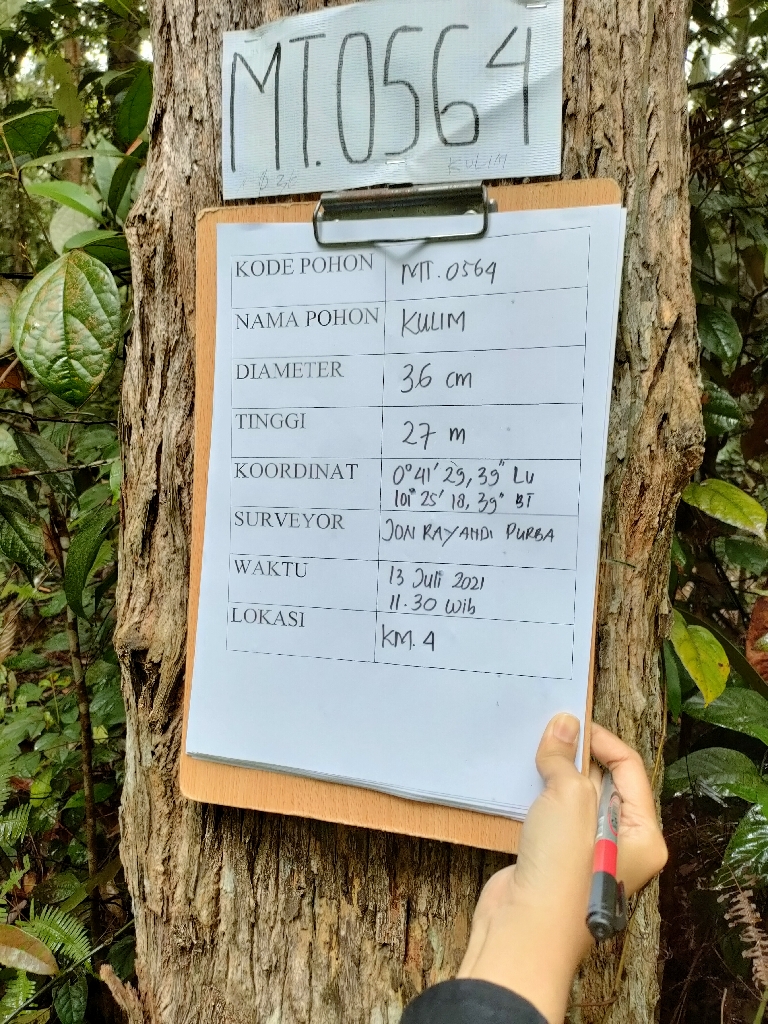 MT.0564
KULIM
KODE POHON MT.0564
NAMA POHON KULIM
DIAMETER 36 cm
TINGGI 27 m
KOORDINAT 0°41'29,39" LU
101°25'18,39" BT
SURVEYOR JON RAYANDI PURBA
WAKTU 13 Juli 2021
11.30 Wib
LOKASI KM.4